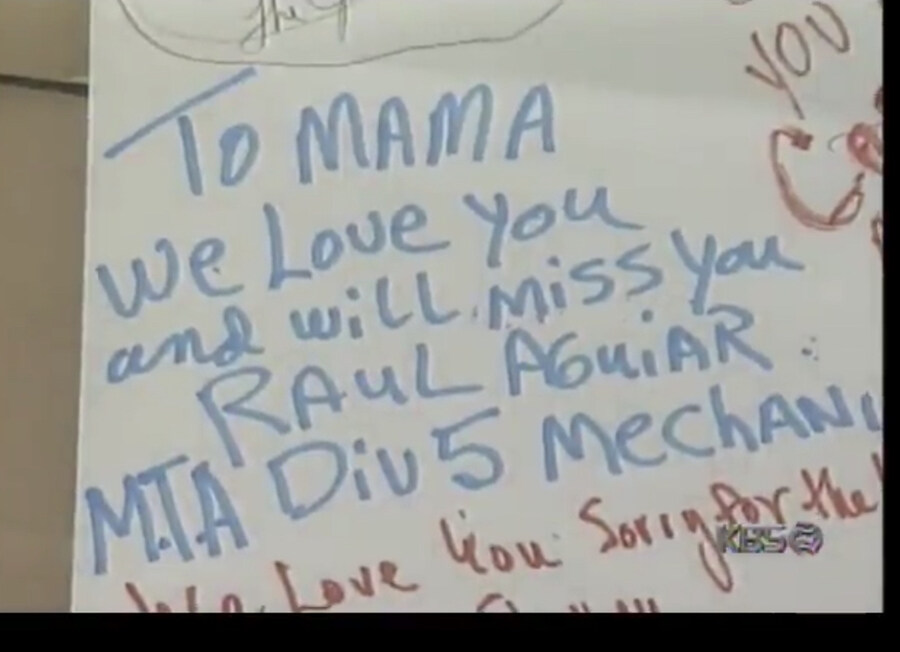 the
YOU
TO MAMA
We Love you
and will miss you
RAUL AGUiAR
M.T.A Div 5 MechANi
We Love You Sorry for the
KBS